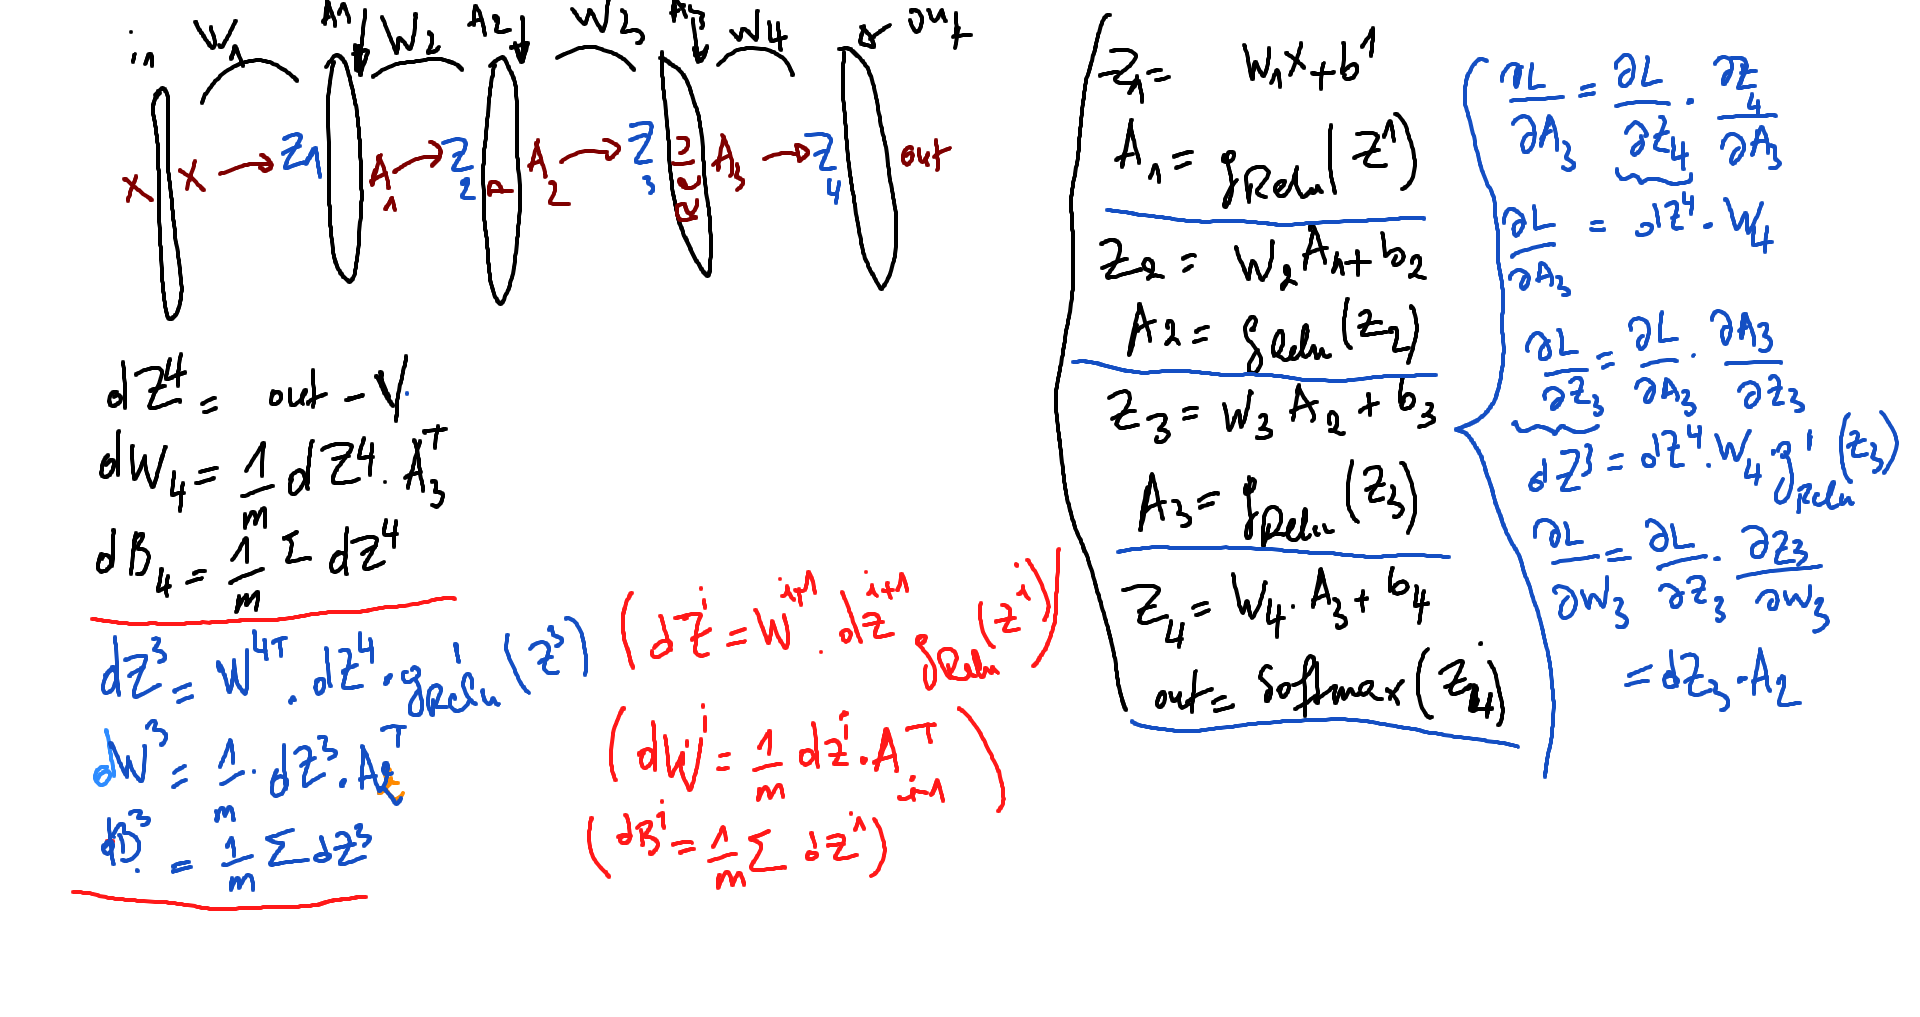 in W1 A1 W2 A2 W3 A3 W4 out
X X → Z1 A1 → Z2 R A2 → Z3 Relu A3 → Z4 out
dZ4 = out - Y
dW4 = 1/m dZ4 . A3^T
dB4 = 1/m Σ dZ4
dZ^3 = W^4T . dZ^4 . g'Relu (Z^3)
dW^3 = 1/m . dZ^3 . A2^T
dB^3 = 1/m Σ dZ^3
(dZ^i = W^i+1 . dZ^i+1 gRelu (Z^i))
(dW^i = 1/m dZ^i . A^T i-1)
(dB^i = 1/m Σ dZ^i)
Z1 = W1X + b^1
A1 = gRelu(Z^1)
Z2 = W2A1 + b2
A2 = gRelu(Z2)
Z3 = W3A2 + b3
A3 = gRelu(Z3)
Z4 = W4 . A3 + b4
out = softmax(Z4)
∂L/∂A3 = ∂L/∂Z4 . ∂Z4/∂A3
∂L/∂A3 = dZ^4 . W4
∂L/∂Z3 = ∂L/∂A3 . ∂A3/∂Z3
dZ^3 = dZ^4 . W4 . g'Relu(Z3)
∂L/∂W3 = ∂L/∂Z3 . ∂Z3/∂W3
= dZ3 . A2